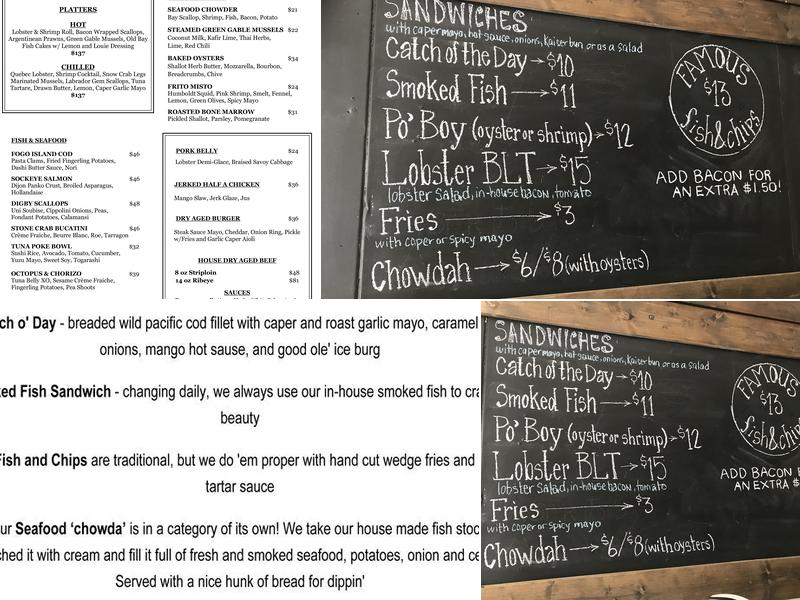 PLATTERS
HOT
Lobster & Shrimp Roll, Bacon Wrapped Scallops,
Argentinean Prawns, Green Gable Mussels, Old Bay
Fish Cakes w/ Lemon and Louie Dressing
$137
CHILLED
Quebec Lobster, Shrimp Cocktail, Snow Crab Legs
Marinated Mussels, Labrador Gem Scallops, Tuna
Tartare, Drawn Butter, Lemon, Caper Garlic Mayo
$137
SEAFOOD CHOWDER $21
Bay Scallop, Shrimp, Fish, Bacon, Potato
STEAMED GREEN GABLE MUSSELS $22
Coconut Milk, Kafir Lime, Thai Herbs,
Lime, Red Chili
BAKED OYSTERS $34
Shallot Herb Butter, Mozzarella, Bourbon,
Breadcrumbs, Chive
FRITO MISTO $24
Humboldt Squid, Pink Shrimp, Smelt, Fennel,
Lemon, Green Olives, Spicy Mayo
ROASTED BONE MARROW $31
Pickled Shallot, Parsley, Pomegranate
FISH & SEAFOOD
FOGO ISLAND COD $46
Pasta Clams, Fried Fingerling Potatoes,
Dashi Butter Sauce, Nori
SOCKEYE SALMON $46
Dijon Panko Crust, Broiled Asparagus,
Hollandaise
DIGBY SCALLOPS $48
Uni Soubise, Cippolini Onions, Peas,
Fondant Potatoes, Calamansi
STONE CRAB BUCATINI $46
Crème Fraîche, Beurre Blanc, Roe, Tarragon
TUNA POKE BOWL $32
Sushi Rice, Avocado, Tomato, Cucumber,
Yuzu Mayo, Sweet Soy, Togarashi
OCTOPUS & CHORIZO $39
Tuna Belly XO, Sesame Crème Fraîche,
Fingerling Potatoes, Pea Shoots
PORK BELLY $24
Lobster Demi-Glace, Braised Savoy Cabbage
JERKED HALF A CHICKEN $36
Mango Slaw, Jerk Glaze, Jus
DRY AGED BURGER $36
Steak Sauce Mayo, Cheddar, Onion Ring, Pickle
w/Fries and Garlic Caper Aioli
HOUSE DRY AGED BEEF
8 oz Striploin $48
14 oz Ribeye $81
SAUCES
SANDWICHES
with caper mayo, hot sauce, onions, Kaiter bun or as a salad
Catch of the Day → $10
Smoked Fish → $11
Po' Boy (oyster or shrimp) → $12
Lobster BLT → $15
lobster Salad, in-house bacon, tomato
Fries → $3
with caper or spicy mayo
Chowdah → $6/$8 (with oysters)
FAMOUS
$13
fish & chips
ADD BACON FOR
AN EXTRA $1.50!
ch o' Day - breaded wild pacific cod fillet with caper and roast garlic mayo, caramel
onions, mango hot sause, and good ole' ice burg
ked Fish Sandwich - changing daily, we always use our in-house smoked fish to cra
beauty
Fish and Chips are traditional, but we do 'em proper with hand cut wedge fries and
tartar sauce
ur Seafood 'chowda' is in a category of its own! We take our house made fish stoc
ched it with cream and fill it full of fresh and smoked seafood, potatoes, onion and ce
Served with a nice hunk of bread for dippin'
SANDWICHES
with caper mayo, hot sauce, onions, Kaiter bun or as a salad
Catch of the Day → $10
Smoked Fish → $11
Po' Boy (oyster or shrimp) → $12
Lobster BLT → $15
lobster Salad, in-house bacon, tomato
Fries → $3
with caper or spicy mayo
Chowdah → $6/$8 (with oysters)
FAMOUS
$13
fish & chips
ADD BACON F
AN EXTRA $